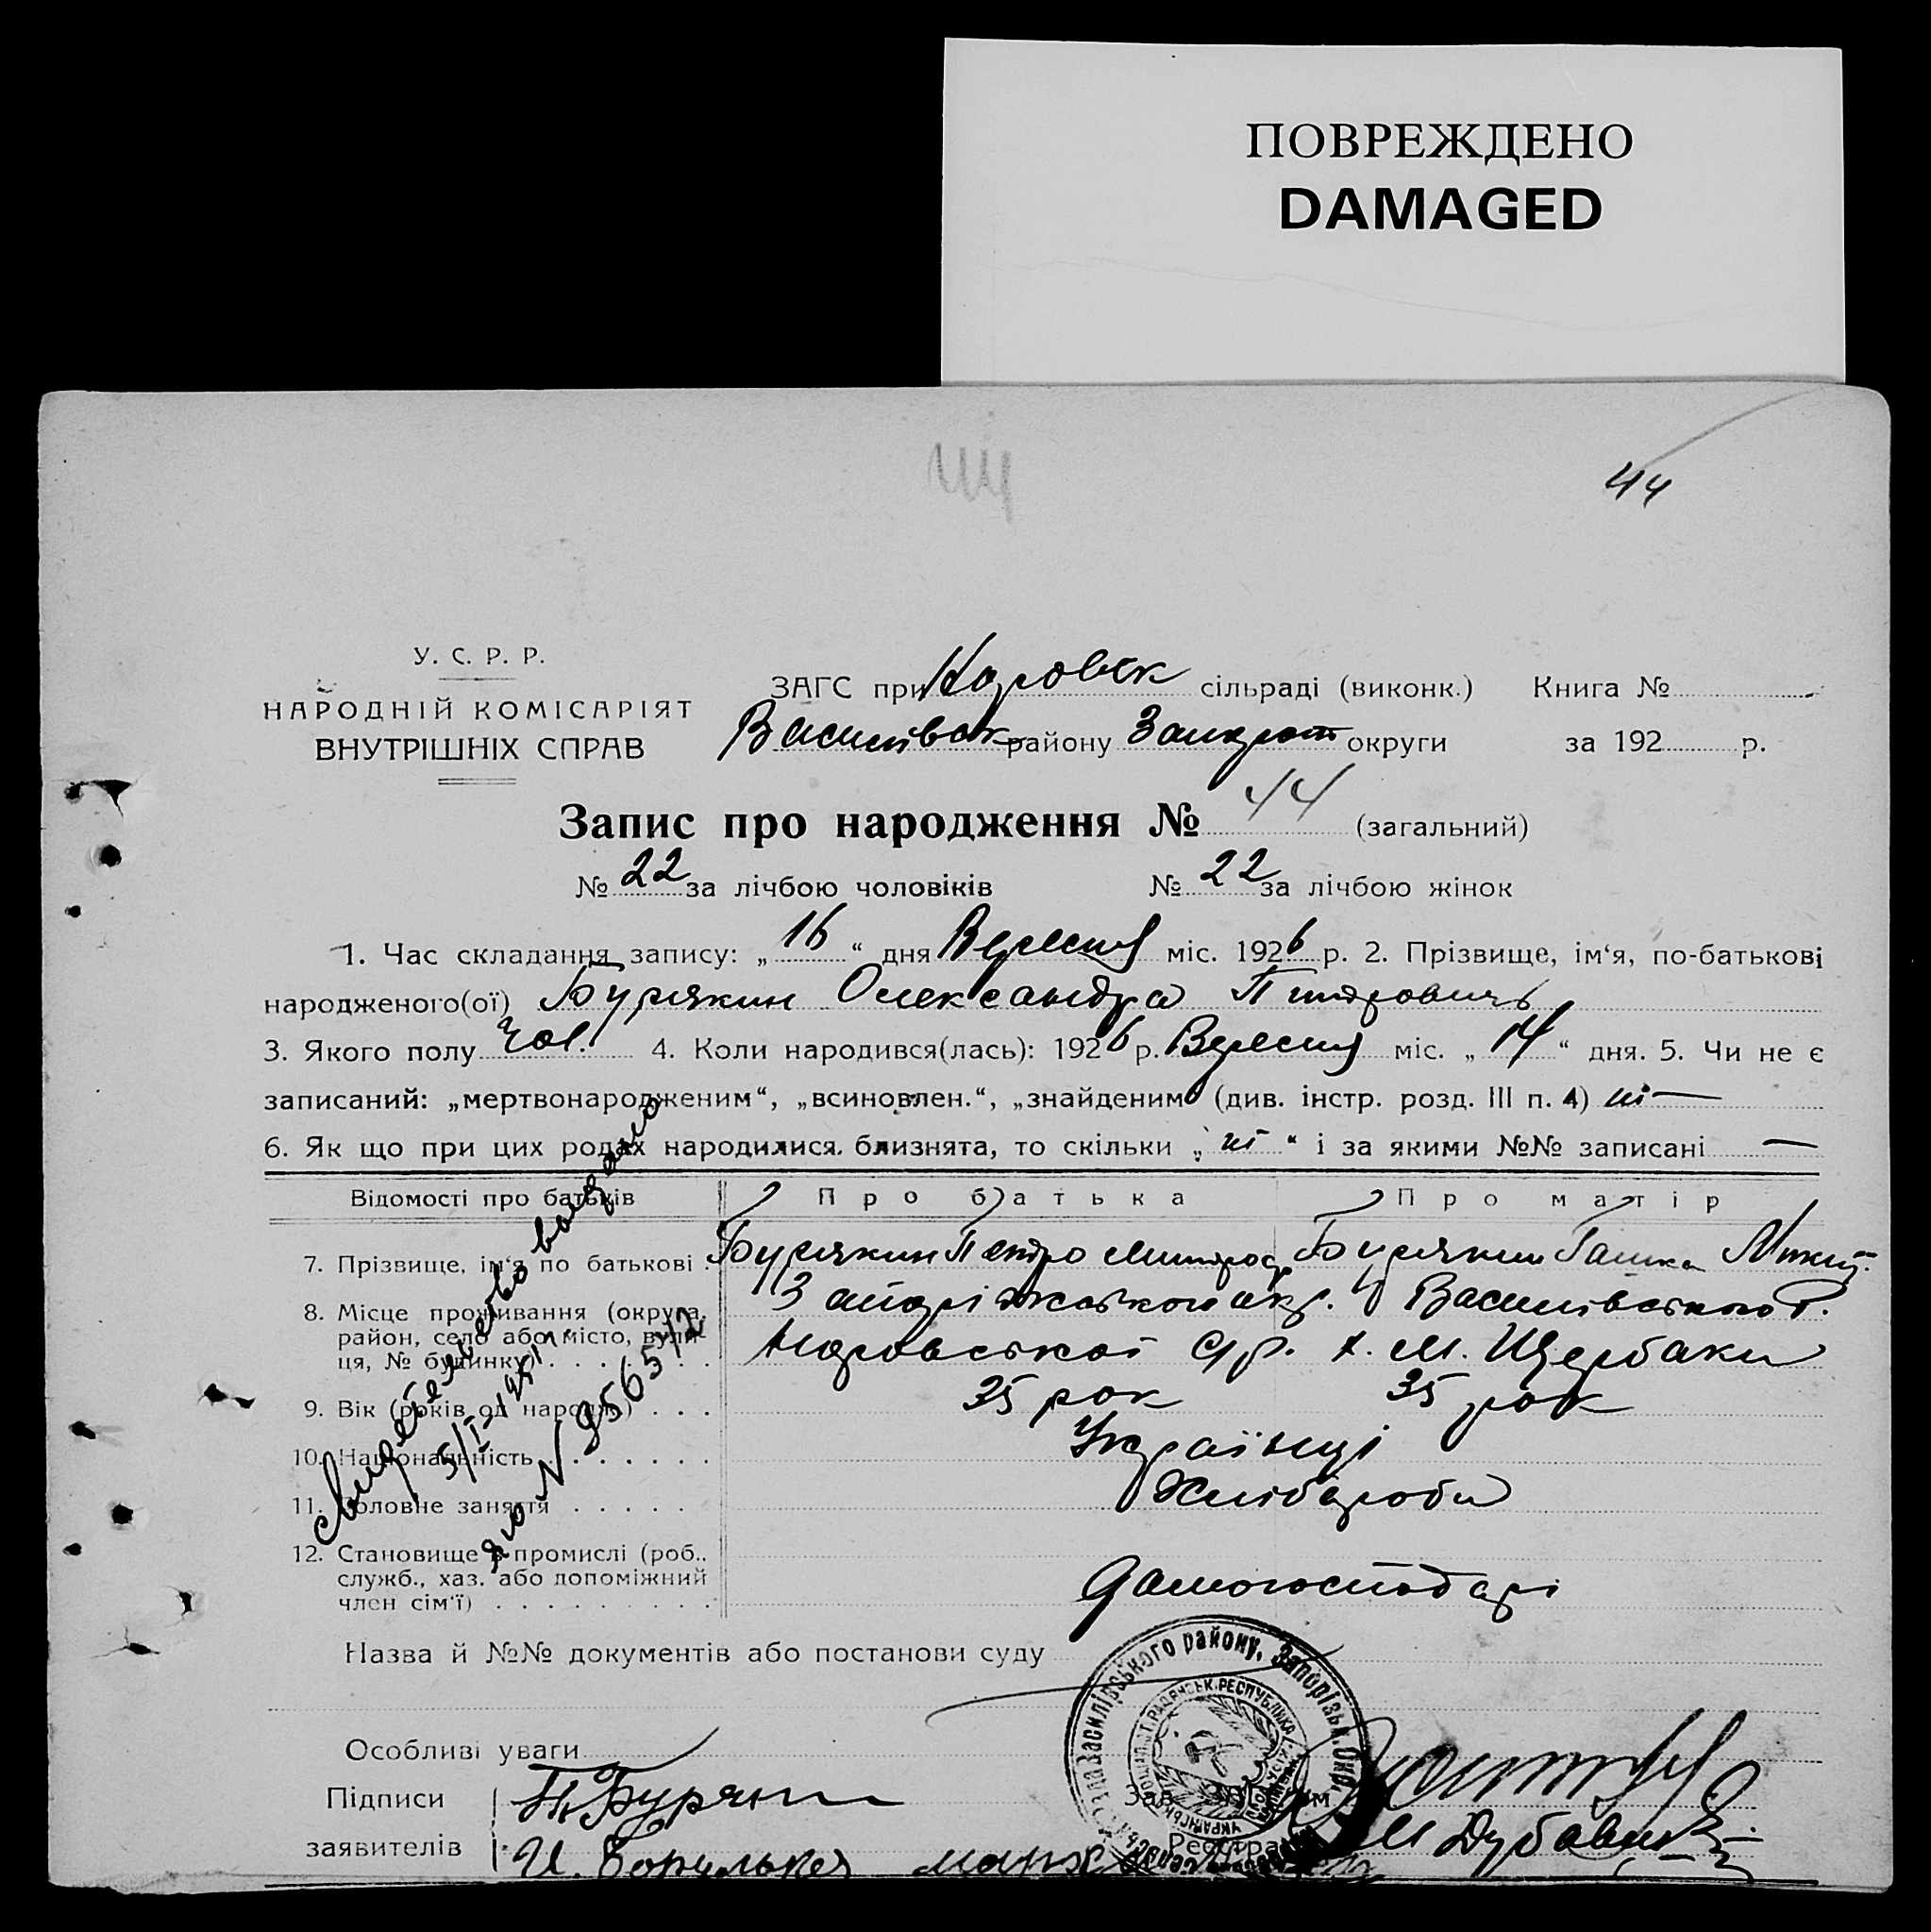 ПОВРЕЖДЕНО
DAMAGED
44
44
У. С. Р. Р.
НАРОДНІЙ КОМІСАРІЯТ
ВНУТРІШНІХ СПРАВ
ЗАГС при сільраді (виконк.) Книга №
Василівськ району Запоріж округи за 192 р.
Запис про народження № 44 (загальний)
№ 22 за лічбою чоловіків № 22 за лічбою жінок
1. Час складання запису: „ 16 “ дня Вересня міс. 1926 р. 2. Прізвище, ім‘я, по-батькові
народженого(ої) Бурякин Олександра Питровичь
3. Якого полу Чол. 4. Коли народився(лась): 1926 р. Вересня міс. „ 14 “ дня. 5. Чи не є
записаний: „мертвонародженим“, „всиновлен.“, „знайденим“ (див. інстр. розд. III п. 4) ні —
6. Як що при цих родах народилися близнята, то скільки „ ні “ і за якими №№ записані —
Відомості про батьків Про батька Про матір
7. Прізвище, ім‘я по батькові . Бурякин Петро Митроф Бурякин Гашка Микит.
8. Місце проживання (округа, Запоріжського окр. Василівського Р.
район, село або місто, вули-
ця, № будинку) С/р. х. М. Щербаки
9. Вік (років од народж.) . . . 35 рок 35 рок
10. Національність . . . . . . . Українці
11. Головне заняття . . . . . Хлібороби
12. Становище в промислі (роб.,
служб., хаз. або допоміжний
член сім‘ї) . . . . . . . . . Домогосподарі
свидетельство выдано
5/I-1951 г.
ЯЮ N 956572
Назва й №№ документів або постанови суду
Василівського району, Запорізьк. Окр.
Особливі уваги
Підписи П. Буряки Зав. ЗАГС‘ом
заявителів И. Реєстратор М Дубовик